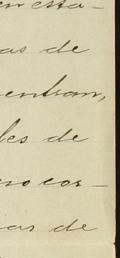 enesta-
as de
entran,
les de
no cor-
as de